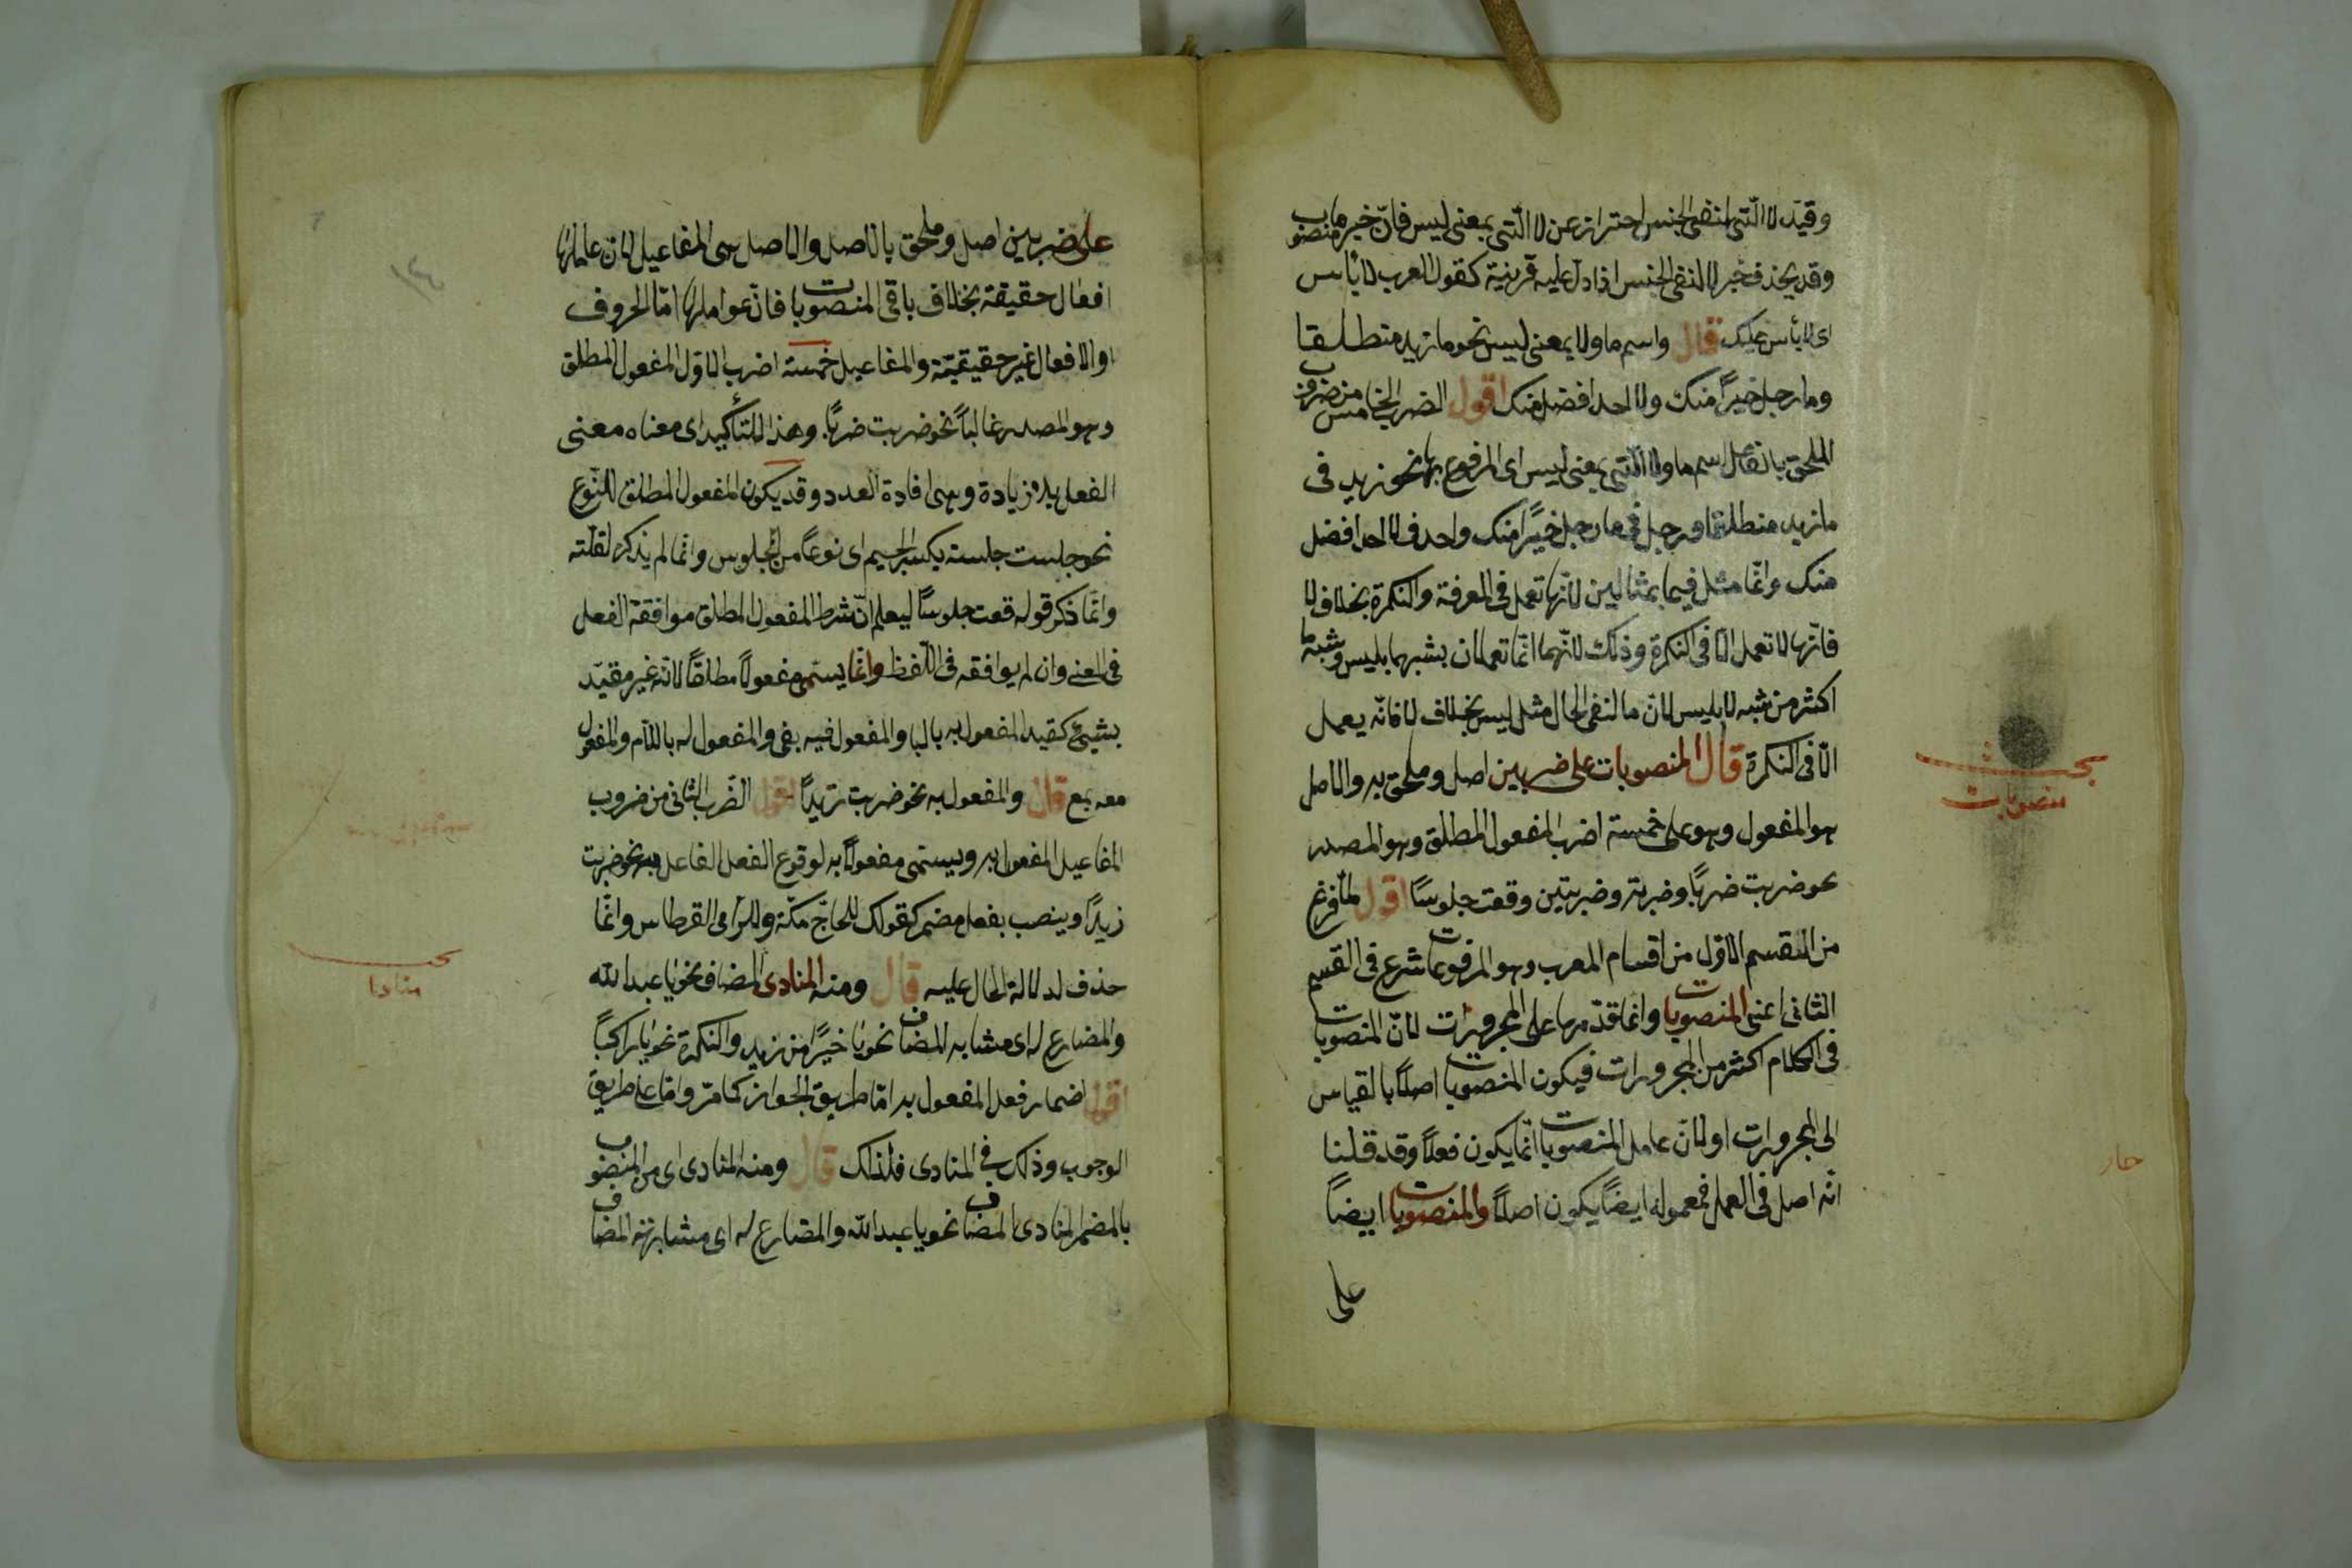 وقيّد لا الّتي لنفي الجنس احتراز عن لا الّتي بمعنى ليس فانّ خبرها منصوب
وقد يحذف خبر لا لنفي الجنس اذا دلّ عليه قرينة كقول العرب لا بأس
اى لا بأس عليك قال واسم ما ولا بمعنى ليس نحو ما زيد منطلقا
وما رجل خيرًا منك ولا احد افضل منك اقول الضرب الخامس من ضروب
الملحق بالفاعل اسم ما ولا الّتي بمعنى ليس اى المرفوع بهما نحو زيد فى
ما زيد منطلقًا ورجل فى ما رجل خيرًا منك واحد فى لا احد افضل
منك وانّما مثل فيما بمثالين لانّها تعمل فى المعرفة والنكرة بخلاف لا
فانّها لا تعمل الّا فى النكرة وذلك لانّهما انّما تعملان بشبههما بليس وشبه ما
اكثر من شبه لا بليس لانّ ما لنفى الحال مثل ليس بخلاف لا فانّه يعمل
الّا فى النكرة قال المنصوبات على ضربين اصل وملحق به والاصل
هو المفعول وهو على خمسة اضرب المفعول المطلق وهو المصدر
نحو ضربت ضربًا وضربة وضربتين وقعت جلوسًا اقول لمّا فرغ
من القسم الاوّل من اقسام المعرب وهو المرفوعات شرع فى القسم
الثانى اعنى المنصوبات وانما قدّمها على المجرورات لانّ المنصوبات
فى الكلام اكثر من المجرورات فيكون المنصوبات اصلًا بالقياس
الى المجرورات او لانّ عامل المنصوبات انّما يكون فعلًا وقد قلنا
انّه اصل فى العمل فمعموله ايضًا يكون اصلًا والمنصوبات ايضًا
على
بحث
منصوبات
على ضربين اصل وملحق بالاصل والاصل هى المفاعيل لانّ عاملها
افعال حقيقة بخلاف باقى المنصوبات فانّ عواملها امّا الحروف
او الافعال غير حقيقيّة والمفاعيل خمسة اضرب الاوّل المفعول المطلق
وهو المصدر غالبًا نحو ضربت ضربًا وهذا للتأكيد اى معناه معنى
الفعل بلا زيادة وهى افادة العدد وقد يكون المفعول المطلق للنّوع
نحو جلست جلسة بكسر الجيم اى نوعًا من الجلوس وانّما لم يذكره لقلّته
وانّما ذكر قوله قعت جلوسًا ليعلم انّ شرط المفعول المطلق موافقة الفعل
فى المعنى وان لم يوافقه فى اللّفظ وانّما يسمّى مفعولًا مطلقًا لانّه غير مقيّد
بشيئ كقيد المفعول به بالبا والمفعول فيه بفى والمفعول له باللّام والمفعول
معه بمع قال والمفعول به نحو ضربت زيدًا اقول الضّرب الثانى من ضروب
المفاعيل المفعول به ويسمّى مفعولًا به لوقوع الفعل الفاعل به نحو ضربت
زيدًا وينصب بفعل مضمر كقولك للحاجّ مكّة وللرّامى القرطاس وانّما
حذف لدلالة الحال عليه قال ومنه المنادى المضاف نحو يا عبد الله
والمضارع له اى مشابه المضاف نحو يا خيرًا من زيد والنكرة نحو يا راكبًا
اقول اضمار فعل المفعول به امّا طريق الجواز كما مرّ وامّا على طريق
الوجوب وذلك فى المنادى فلذلك قال ومنه المنادى اى من المنصوب
بالمضمر المنادى المضاف نحو يا عبد الله والمضارع له اى مشابهة المضاف
بحث
منادا